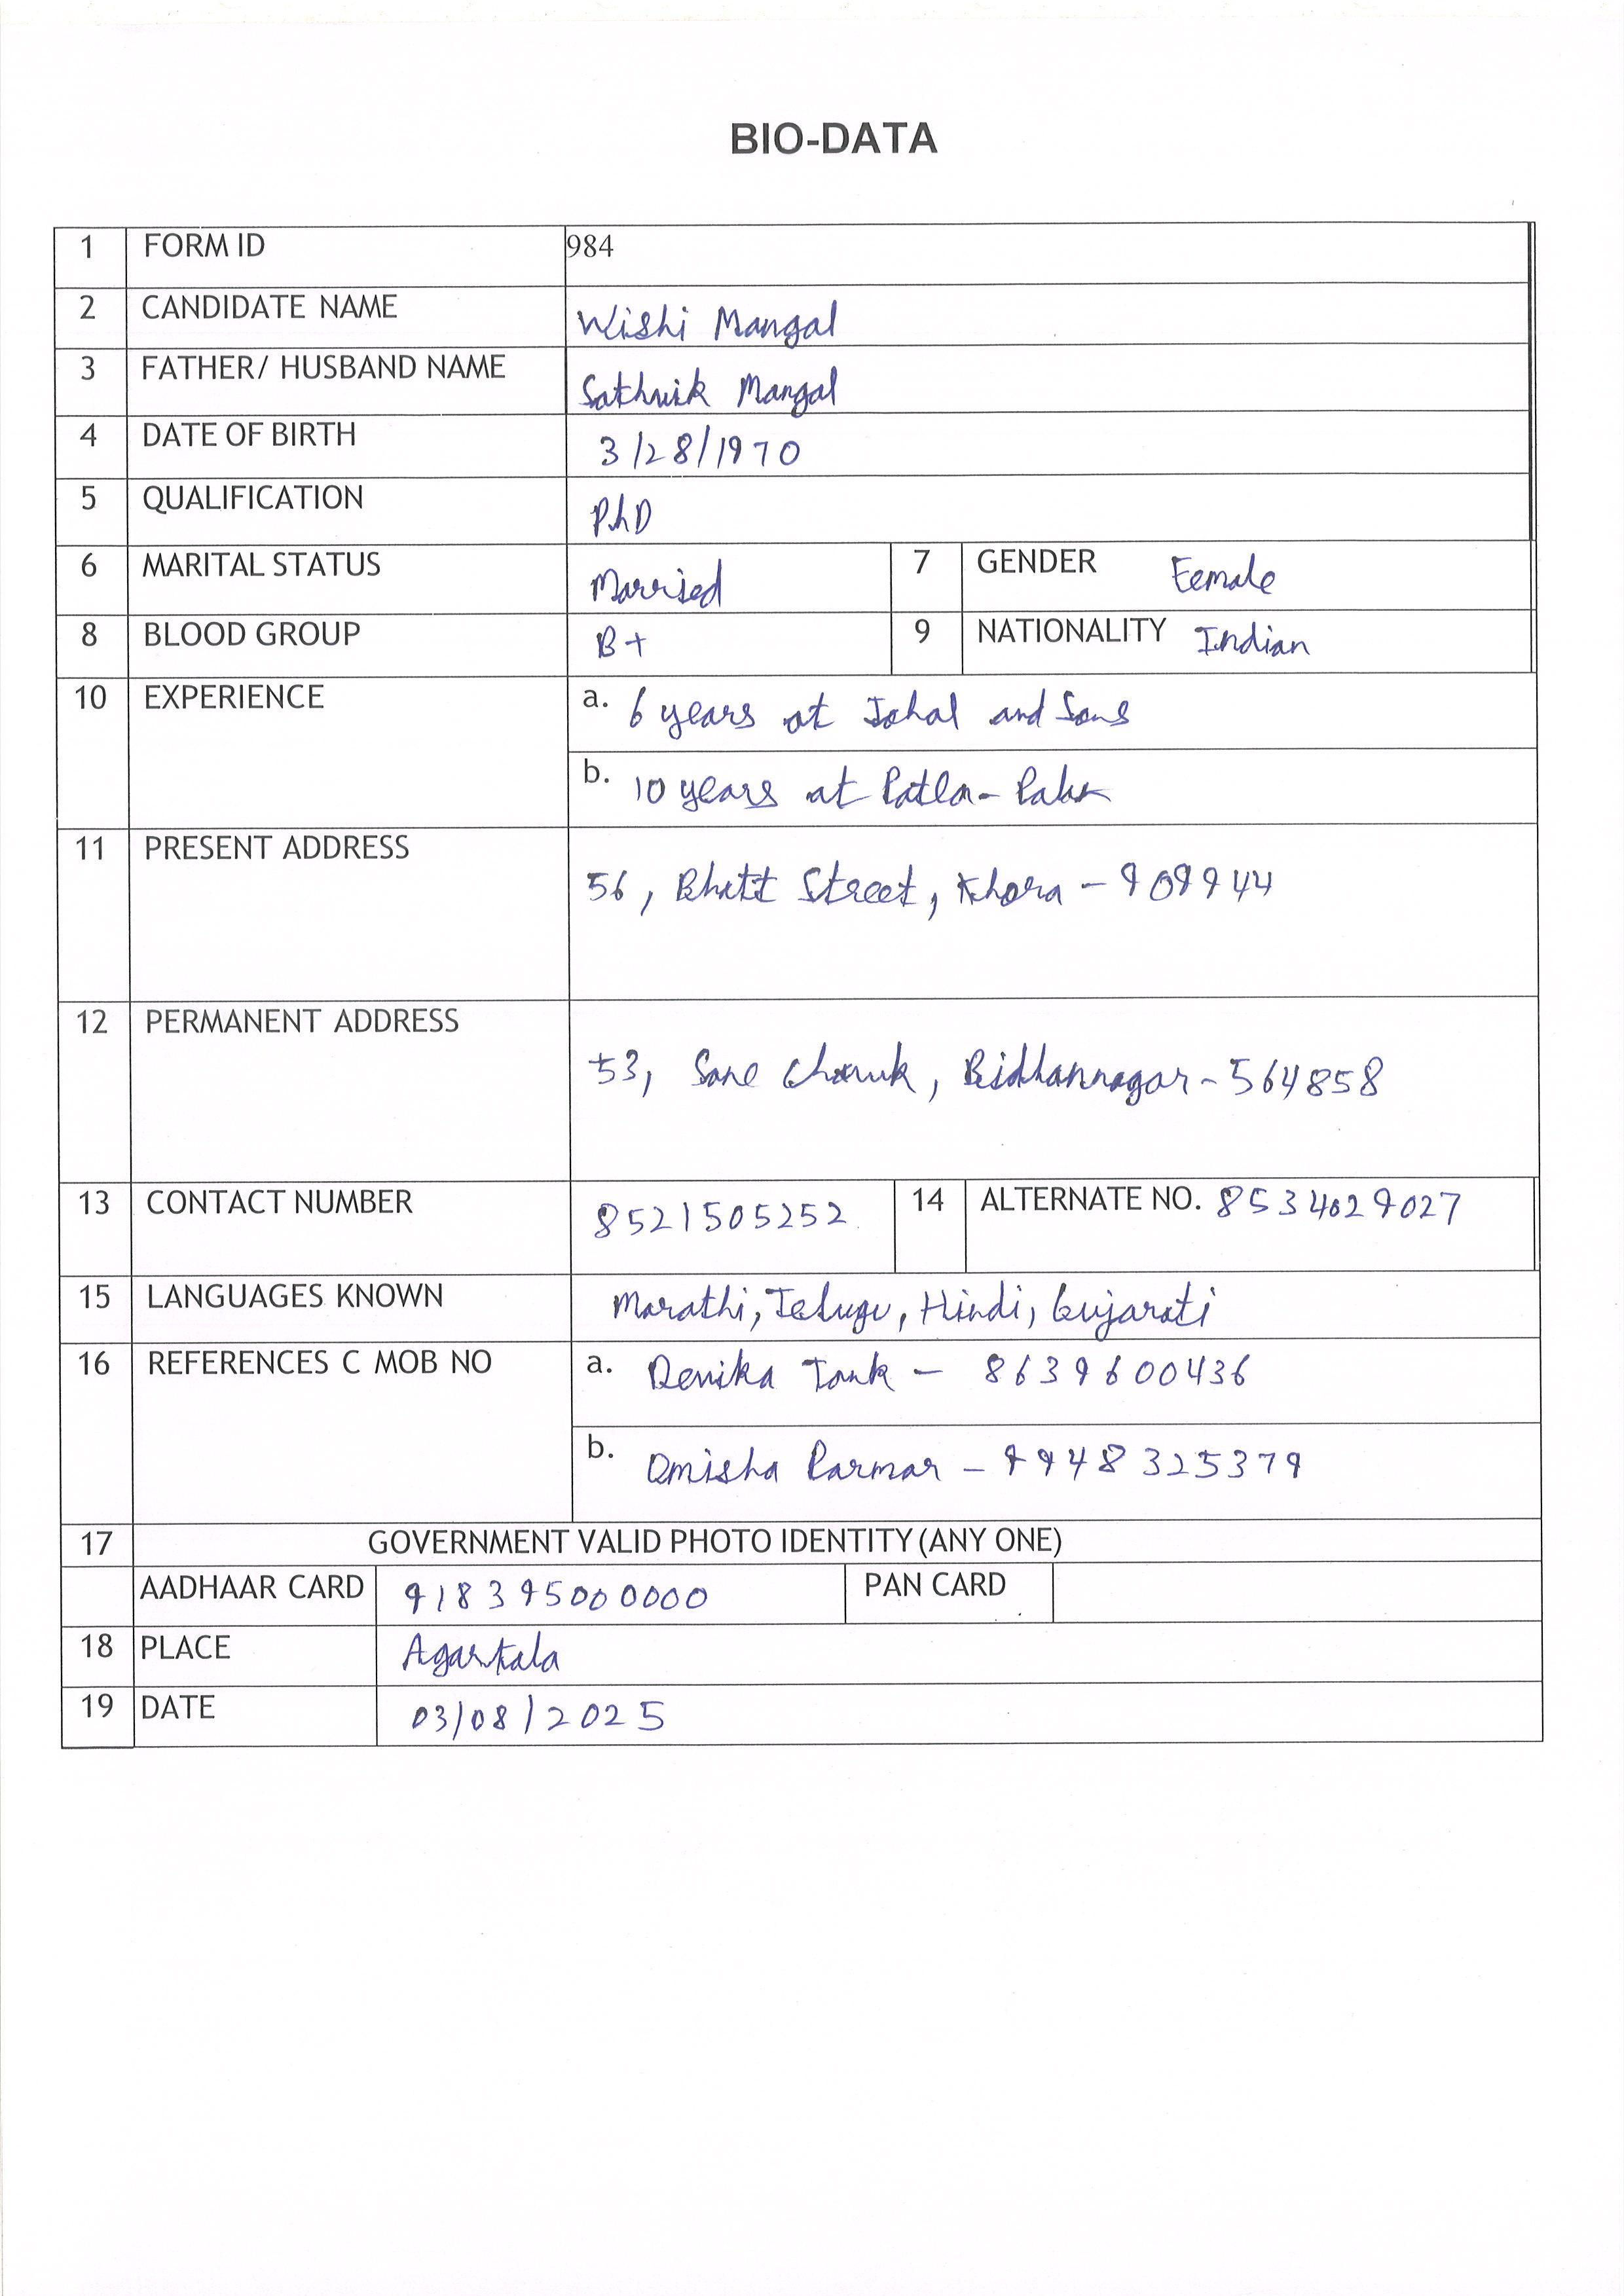 BIO-DATA
1 FORM ID 984
2 CANDIDATE NAME Wishi Mangal
3 FATHER/ HUSBAND NAME Sathvik Mangal
4 DATE OF BIRTH 3/28/1970
5 QUALIFICATION PhD
6 MARITAL STATUS Married 7 GENDER Female
8 BLOOD GROUP B+ 9 NATIONALITY Indian
10 EXPERIENCE a. 6 years at Johal and Sons
b. 10 years at
11 PRESENT ADDRESS 56, Bhatt Street, Khora - 909944
12 PERMANENT ADDRESS 53, Sane Chowk, Bidhannagar - 564858
13 CONTACT NUMBER 8521505252 14 ALTERNATE NO. 8534029027
15 LANGUAGES KNOWN Marathi, Telugu, Hindi, Gujarati
16 REFERENCES C MOB NO a. Renika Tank - 8639600436
b. Omisha Parmar - 9948325379
17 GOVERNMENT VALID PHOTO IDENTITY (ANY ONE)
AADHAAR CARD 918395000000 PAN CARD
18 PLACE Agartala
19 DATE 03/08/2025